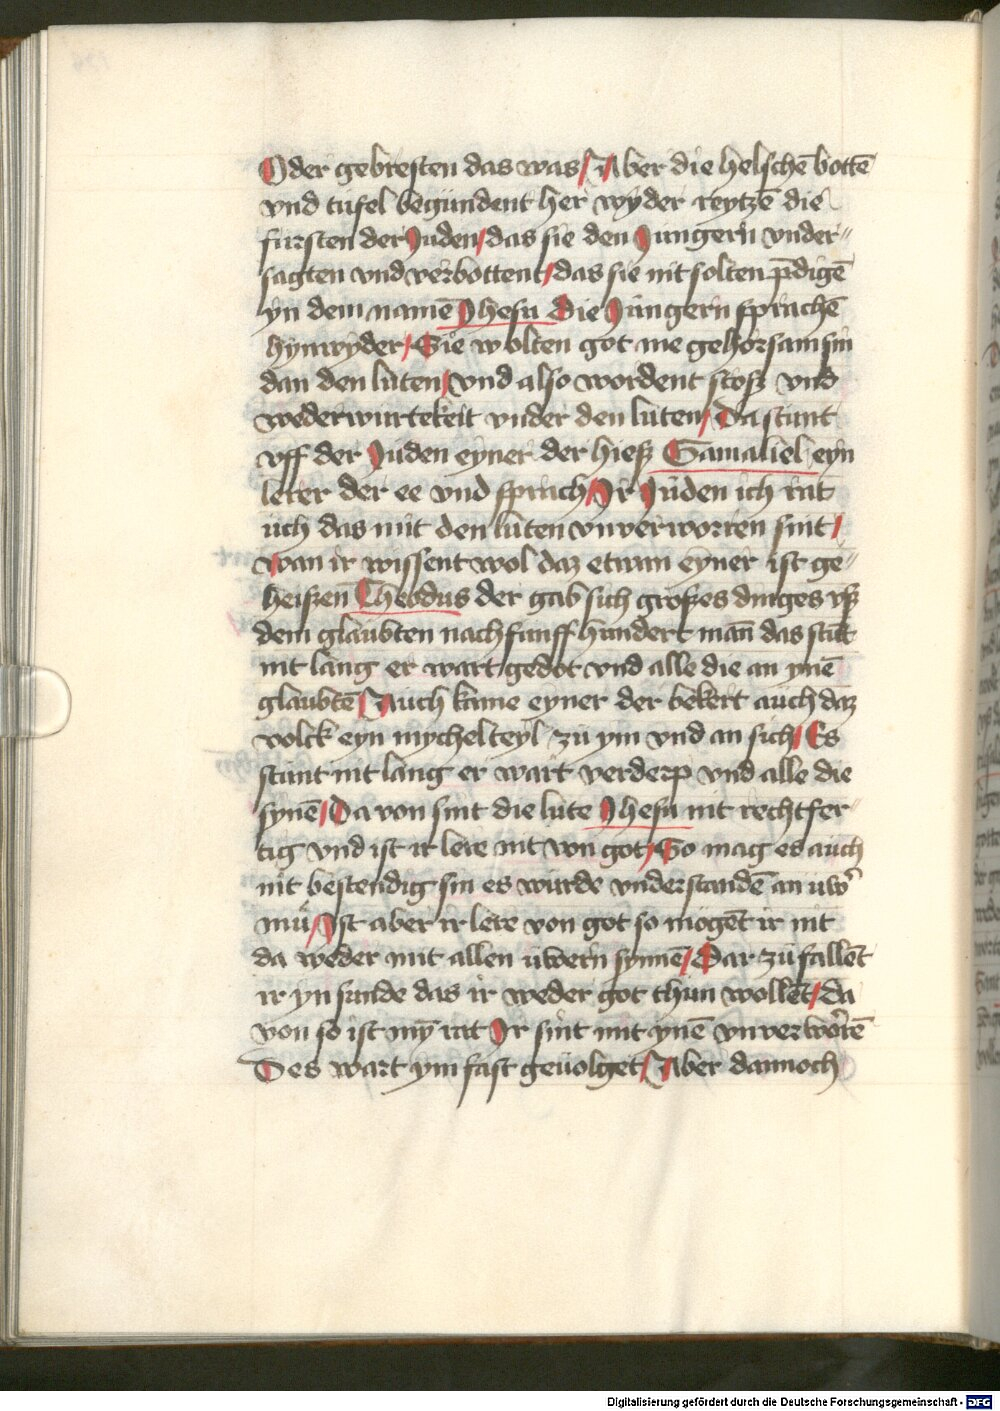 Oder gebresten das was / Aber die helschē bottē
vnd tüfel begündent her wyder reytzē die
fursten der Juden / das sie den Jungern vnder〃
sagten vnd verbottent / das sie nit solten p̄digē
yn dem namē Jhesu Die Jüngern sprachē
hynwyder / Sie wolten got me gehorsam sin
dan den lüten / vnd also wordent stosz vnd
wederwurtekeit vnder den lüten / Da stunt
vff der Jüden eyner der hiesz Gamaliel eyn
lerer der ee vnd sprach / Ir Jüden ich rat
uch das mit den lüten vnverworren sint /
wan ir wissent wol daz etwan eyner ist ge〃
heiszen Theodus der gab sich groszes dinges vsz
dem glaubten nach funff hundert man̄ das stūt
nit lang er wart gedöt vnd alle die an ynē
glaubtē / Auch kame eyner der bekert auch daz
volck eyn mychel teyl zü ym vnd an sich / Es
stunt nit lang er wart verderp vnd alle die
synē / Da von sint die lüte Jhesu nit rechtfer〃
tig vnd ist ir lere nit von got / So mag es auch
nit bestendig sin es würde vnderstandē an uw̉
mü / Ist aber ir lere von got so mogēt ir nit
da weder mit allen uwern synnē / Dar zü fallēt
ir yn sunde das ir weder got thun wollēt / da
von so ist my̅ rat Ir sint mit ynē vnverworē
Des wart ym fast geuolget / Aber dannoch
Digitalisierung gefördert durch die Deutsche Forschungsgemeinschaft - DFG